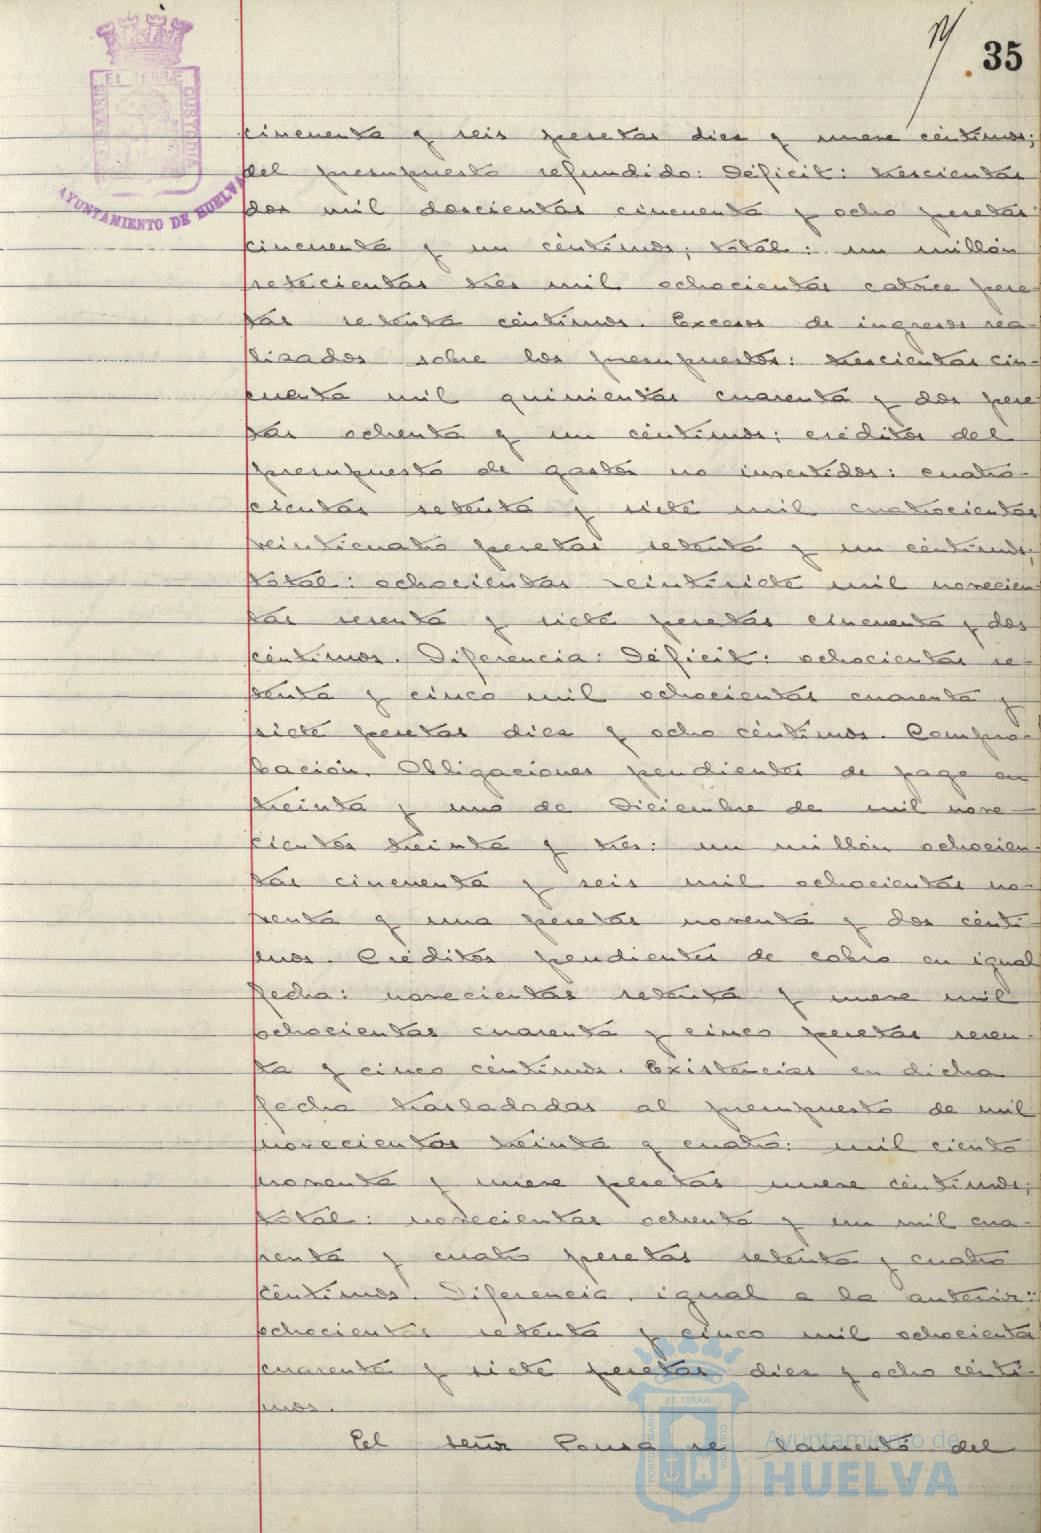 35
cincuenta y seis pesetas diez y nueve céntimos;
del presupuesto refundido: Déficit: trescientas
dos mil doscientas cincuenta y ocho pesetas
cincuenta y un céntimos; total: un millón
setecientas tres mil ochocientas catorce pese-
tas setenta céntimos. Excesos de ingresos rea-
lizados sobre los presupuestos: trescientas cin-
cuenta mil quinientas cuarenta y dos pese
tas ochenta y un céntimos; créditos del
presupuesto de gastos no invertidos: cuatro-
cientas setenta y siete mil cuatrocientas
veinticuatro pesetas setenta y un céntimos;
total: ochocientas veintisiete mil novecien-
tas sesenta y siete pesetas cincuenta y dos
céntimos. Diferencia: Déficit: ochocientas se-
tenta y cinco mil ochocientas cuarenta y
siete pesetas diez y ocho céntimos. Compro-
bación. Obligaciones pendientes de pago en
treinta y uno de Diciembre de mil nove-
cientos treinta y tres: un millón ochocien-
tas cincuenta y seis mil ochocientas no-
venta y una pesetas noventa y dos cénti-
mos. Créditos pendientes de cobro en igual
fecha: novecientas setenta y nueve mil
ochocientas cuarenta y cinco pesetas sesen-
ta y cinco céntimos. Existencias en dicha
fecha trasladadas al presupuesto de mil
novecientos treinta y cuatro: mil ciento
noventa y nueve pesetas nueve céntimos;
total: novecientas ochenta y un mil cua-
renta y cuatro pesetas setenta y cuatro
céntimos. Diferencia, igual a la anterior:
ochocientas setenta y cinco mil ochocientas
cuarenta y siete pesetas diez y ocho cénti-
mos.
El señor Ponsa se lamentó del
ET TERRÆ
CUSTODIA
AYUNTAMIENTO DE HUELVA
ET TERRÆ
Ayuntamiento de
HUELVA